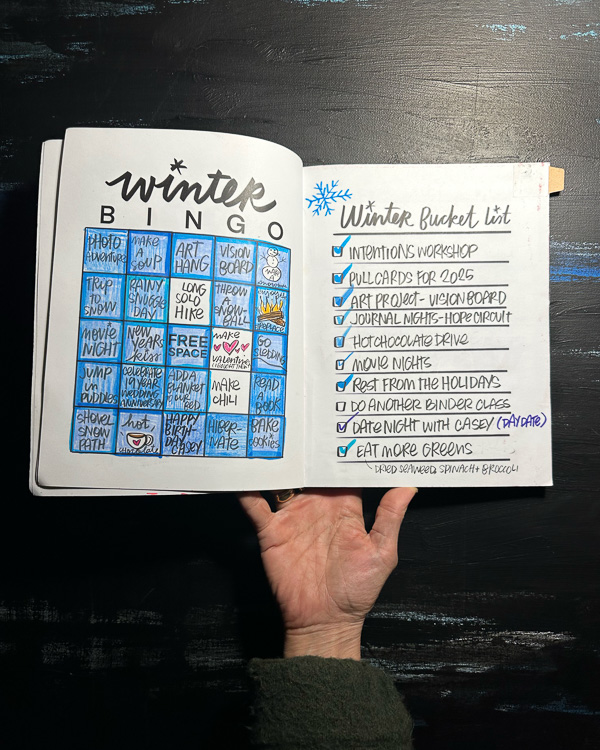 winter
BINGO
PHOTO
ADVENTURE
MAKE
A
SOUP
ART
HANG
VISION
BOARD
TRIP
TO
SNOW
RAINY
SNUGGLE
DAY
LONG
SOLO
HIKE
THROW
A
SNOW-
BALL
FIREPLACE
MOVIE
NIGHT
NEW
YEARS
KISS
FREE
SPACE
MAKE
VALENTINE
GO
SLEDDING
JUMP
IN
PUDDLES
CELEBRATE
19 YEAR
WEDDING
ANNIVERSARY
ADD A
BLANKET
BED
MAKE
CHILI
READ
A
BOOK
SHOVEL
SNOW
PATH
hot
CHOCOLATE
HAPPY
BIRTH-
DAY
CASEY
HIBER-
NATE
BAKE
COOKIES
Winter Bucket List
INTENTIONS WORKSHOP
PULL CARDS FOR 2025
ART PROJECT - VISION BOARD
JOURNAL NIGHTS - HOPE CIRCUIT
HOT CHOCOLATE DRIVE
MOVIE NIGHTS
REST FROM THE HOLIDAYS
DO ANOTHER BINDER CLASS
DATE NIGHT WITH CASEY (DAY DATE)
EAT MORE GREENS
DRIED SEAWEED, SPINACH + BROCCOLI